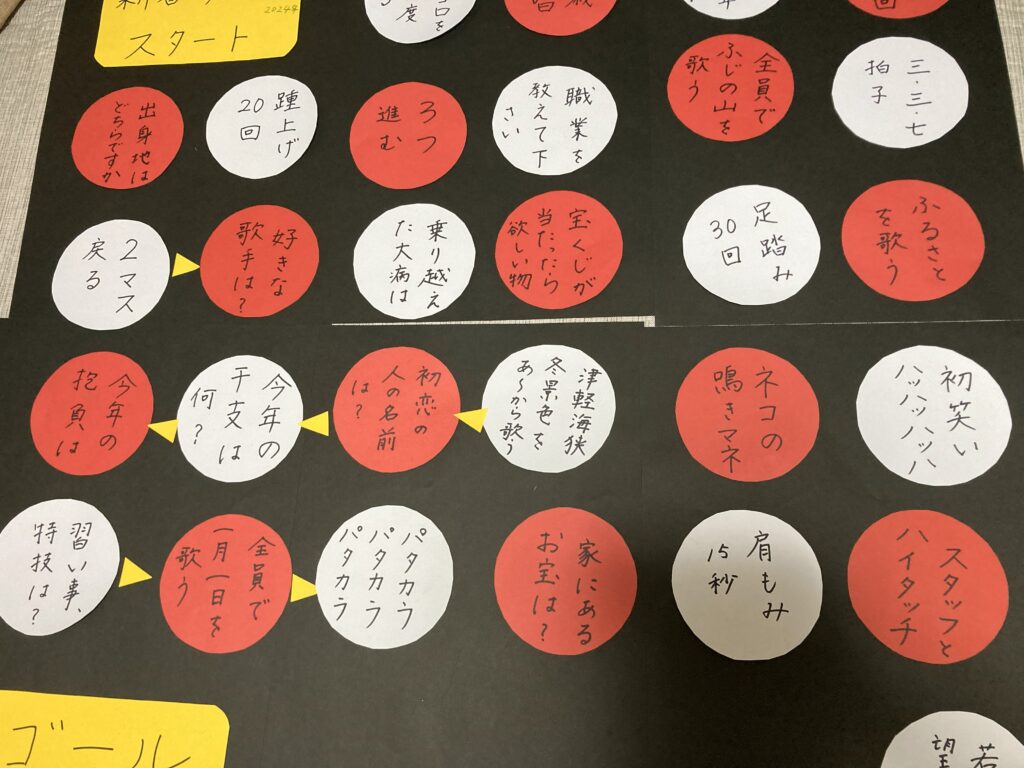 2024年
スタート
全員で
ふじの山を
歌う
三・三・七
拍子
出身地は
どちらですか
踵上げ
20回
3つ
進む
職業を
教えて下
さい
2マス
戻る
好きな
歌手は?
乗り越え
た大病は
宝くじが
当たったら
欲しい物
足踏み
30回
ふるさと
を歌う
今年の
抱負は
今年の
干支は
何?
初恋の
人の名前
は?
津軽海狭
冬景色を
あ〜から歌う
ネコの
鳴きマネ
初笑い
ハッハッハッハ
習い事、
特技は?
全員で
一月一日を
歌う
パタカラ
パタカラ
パタカラ
家にある
お宝は?
肩もみ
15秒
スタッフと
ハイタッチ
ゴール
若
望